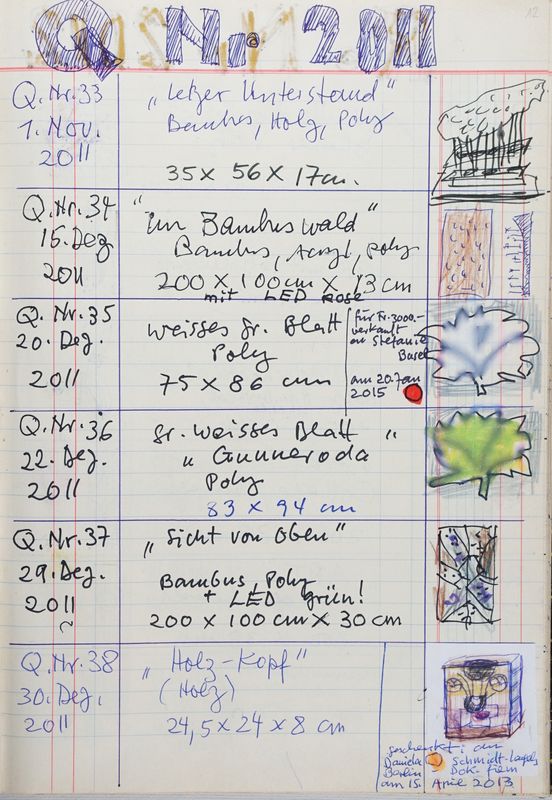 12
Q Nr. 2011
Q.Nr.33
1. Nov.
2011
„Letzter Unterstand"
Bambus, Holz, Poly
35 x 56 x 17cm.
Q.Nr.34
15.Dez
2011
"im Bambuswald"
Bambus, Acryl, Poly
200 x 100 cm x 13 cm
mit LED rose
Q.Nr.35
20. Dez.
2011
weisses Gr. Blatt
Poly
75 x 86 cm
für Fr. 3000.-
verkauft
an Stefanie
Basel
am 20. Jan
2015
Q.Nr.36
22. Dez.
2011
Gr. weisses Blatt "
" Gunneroda
Poly
83 x 94 cm
Q.Nr.37
29. Dez.
2011
„Sicht von Oben"
Bambus, Poly
+ LED grün!
200 x 100 cm x 30 cm
Q.Nr.38
30. Dez.
2011
„Holz-Kopf"
(Holz)
24,5 x 24 x 8 cm
geschenkt: an
Daniela Schmidt-
Berlin - Dok-Film
am 15. April 2013